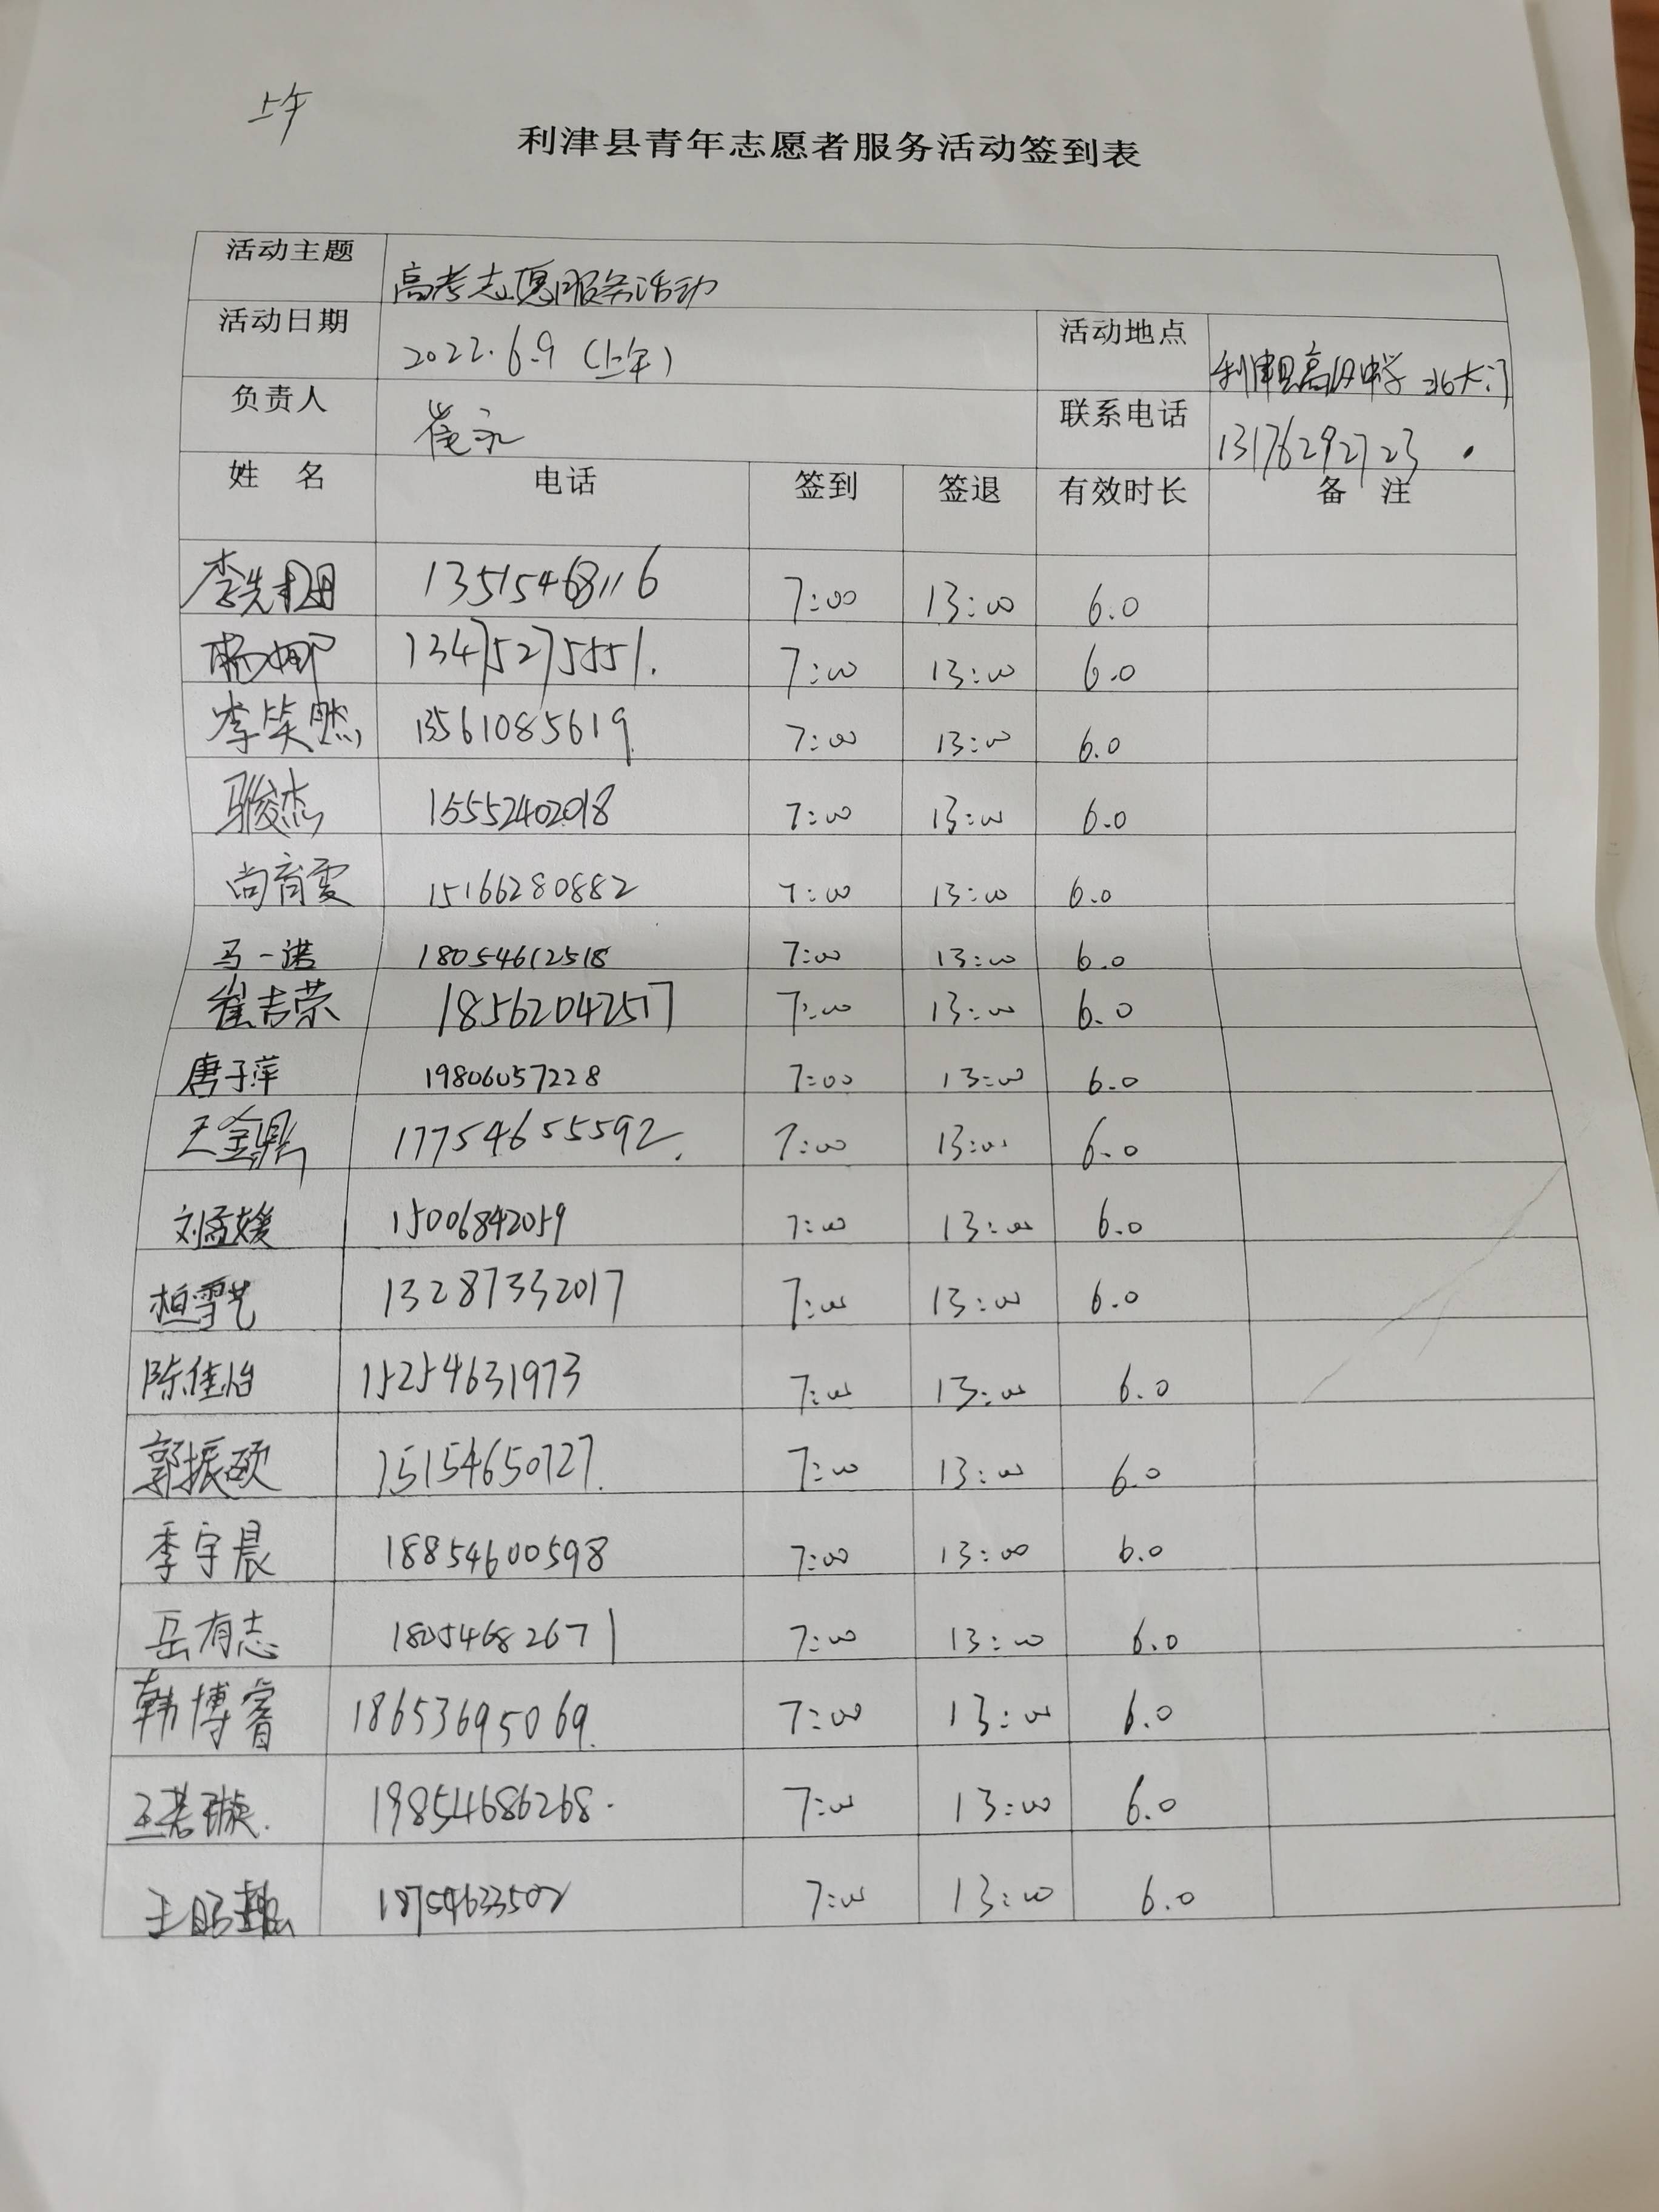 上午
利津县青年志愿者服务活动签到表
活动主题 高考志愿服务活动
活动日期 2022.6.9 (上午) 活动地点 利津县高级中学 北大门
负责人 崔永 联系电话 13176292723
姓 名 电话 签到 签退 有效时长 备 注
李先 13515468116 7:00 13:00 6.0
杨娜 13475275551. 7:00 13:00 6.0
李笑然 13561085619 7:00 13:00 6.0
马俊杰 15552402018 7:00 13:00 6.0
尚育雯 15166280882 7:00 13:00 6.0
马一诺 18054612518 7:00 13:00 6.0
崔吉荣 18562042517 7:00 13:00 6.0
唐子萍 19806057228 7:00 13:00 6.0
王金鼎 17754655592. 7:00 13:00 6.0
刘孟媛 15006842059 7:00 13:00 6.0
桓雪艺 13287332017 7:00 13:00 6.0
陈佳怡 15254631973 7:00 13:00 6.0
郭振硕 15154650727. 7:00 13:00 6.0
季宇晨 18854600598 7:00 13:00 6.0
岳有志 18054682671 7:00 13:00 6.0
韩博睿 18653695069. 7:00 13:00 6.0
王若璇. 19854686268. 7:00 13:00 6.0
王昭 18754633502 7:00 13:00 6.0